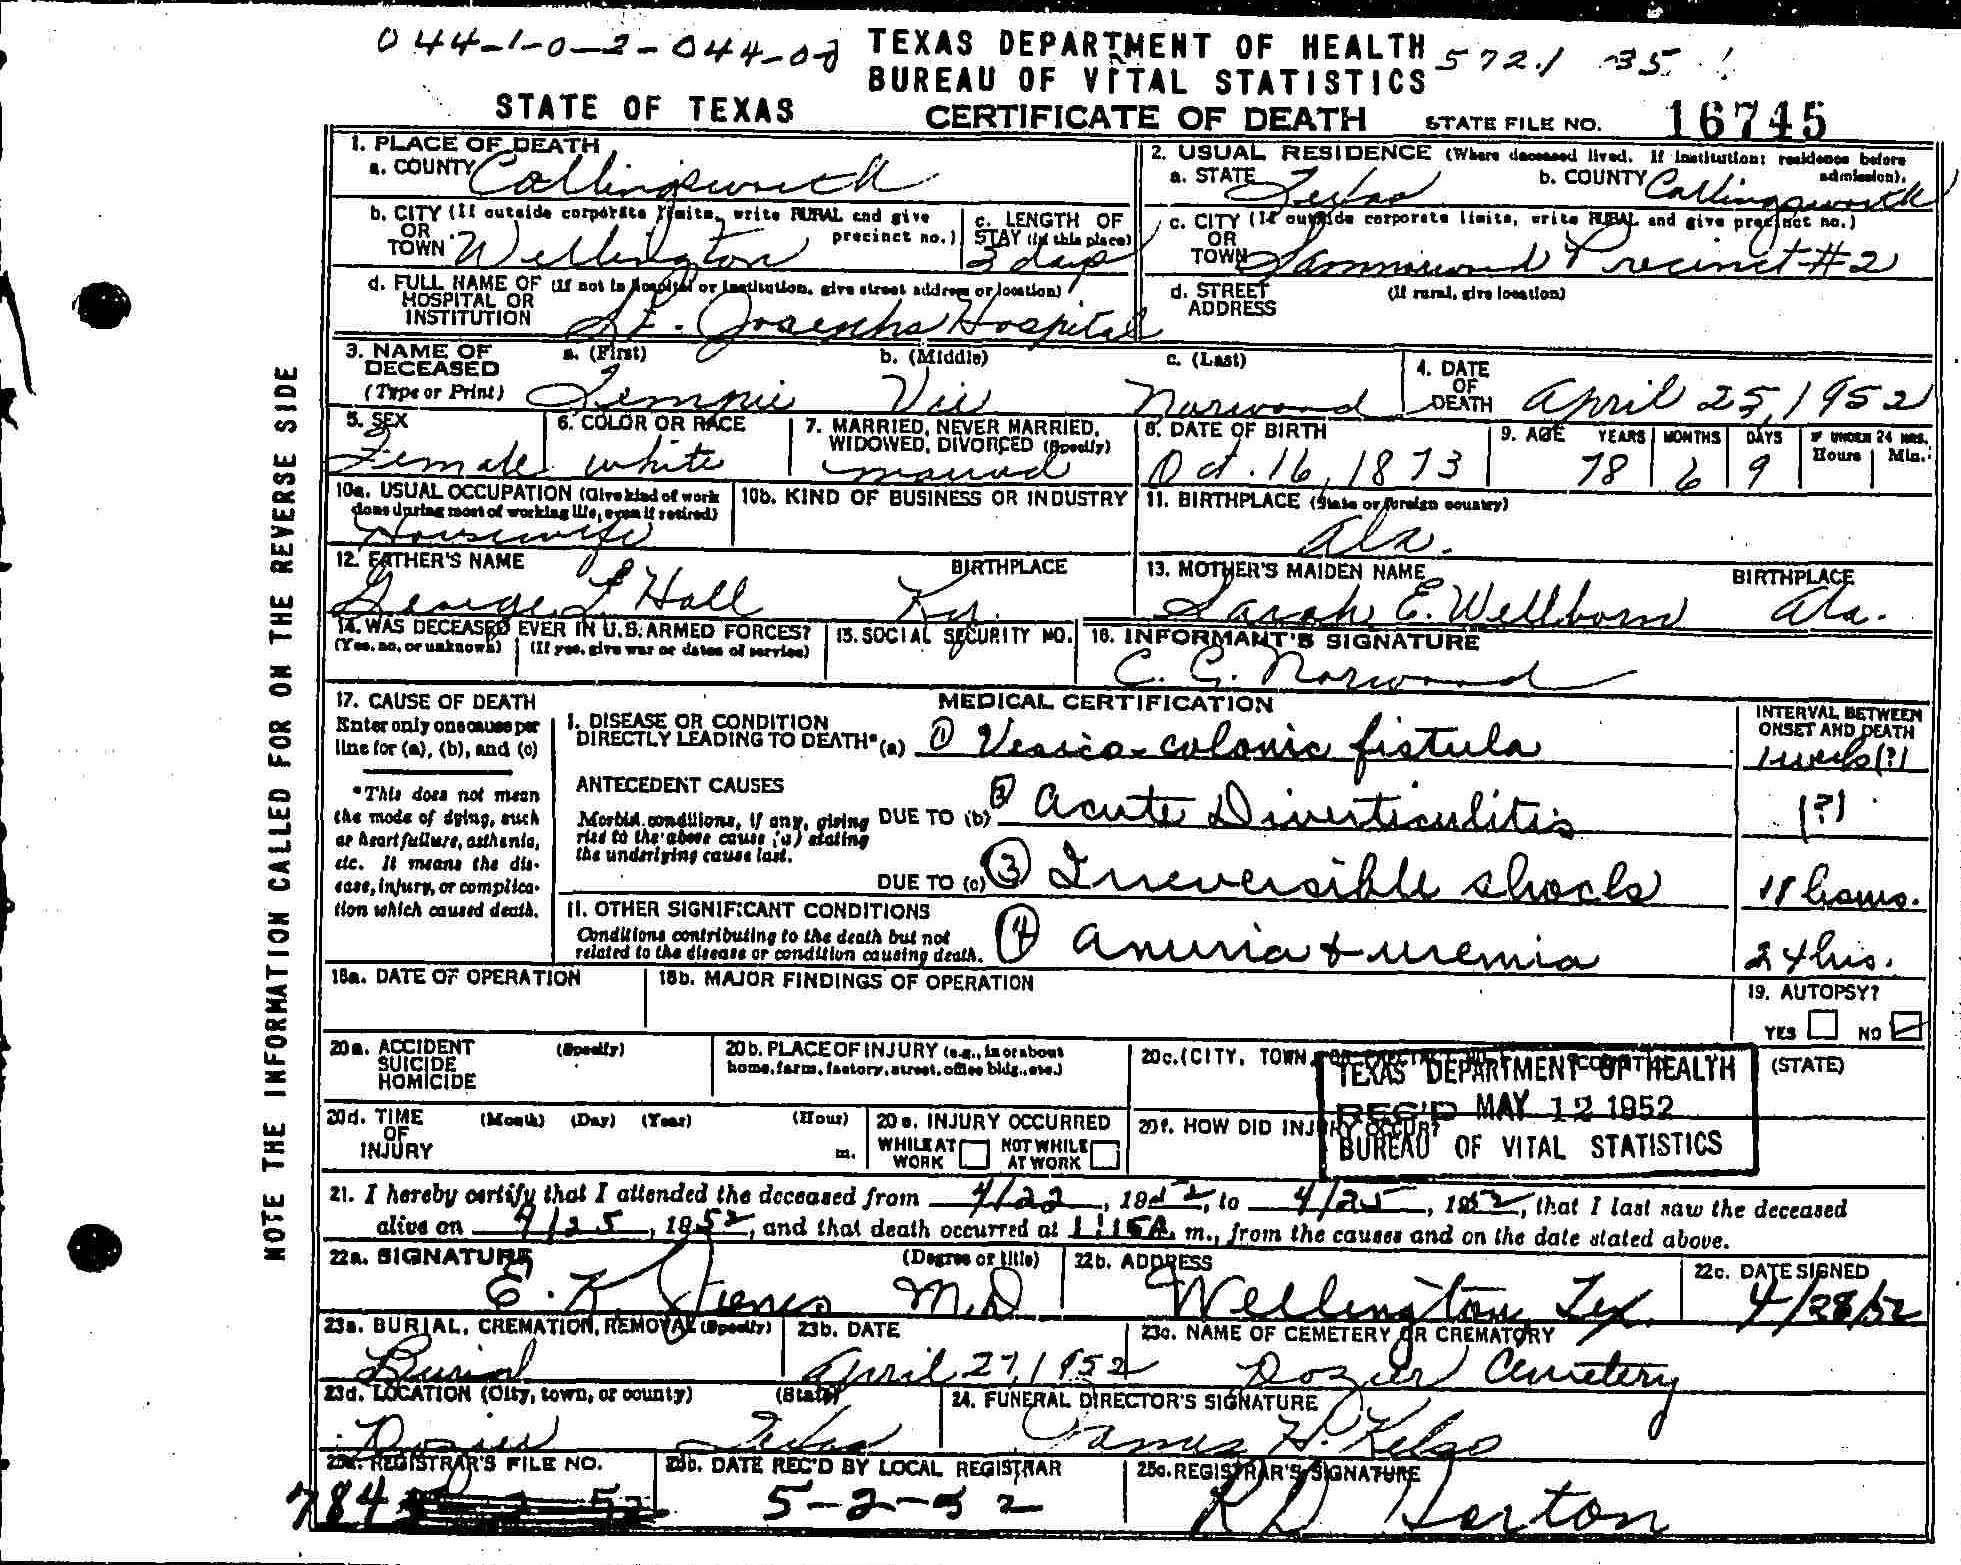 044-1-0-2-044-08 TEXAS DEPARTMENT OF HEALTH 572.1 35
BUREAU OF VITAL STATISTICS
STATE OF TEXAS CERTIFICATE OF DEATH STATE FILE NO. 16745
1. PLACE OF DEATH
a. COUNTY Collingsworth
2. USUAL RESIDENCE (Where deceased lived. If institution: residence before admission).
a. STATE Texas b. COUNTY Collingsworth
b. CITY (If outside corporate limits, write RURAL and give precinct no.)
OR
TOWN Wellington
c. LENGTH OF
STAY (in this place)
3 days
c. CITY (If outside corporate limits, write RURAL and give precinct no.)
OR
TOWN Samnorwood Precinct #2
d. FULL NAME OF (If not in hospital or institution, give street address or location)
HOSPITAL OR
INSTITUTION St. Josephs Hospital
d. STREET (If rural, give location)
ADDRESS
3. NAME OF DECEASED a. (First) b. (Middle) c. (Last)
(Type or Print) Tempie Vie Norwood
4. DATE
OF
DEATH April 25, 1952
5. SEX
Female
6. COLOR OR RACE
white
7. MARRIED, NEVER MARRIED,
WIDOWED, DIVORCED (Specify)
married
8. DATE OF BIRTH
Oct. 16, 1873
9. AGE YEARS MONTHS DAYS IF UNDER 24 HRS.
Hours Min.
78 6 9
10a. USUAL OCCUPATION (Give kind of work
done during most of working life, even if retired)
Housewife
10b. KIND OF BUSINESS OR INDUSTRY
11. BIRTHPLACE (State or foreign country)
Ala.
12. FATHER'S NAME BIRTHPLACE
George L Hall Ky.
13. MOTHER'S MAIDEN NAME BIRTHPLACE
Sarah E. Wellborn Ala.
14. WAS DECEASED EVER IN U.S. ARMED FORCES?
(Yes, no, or unknown) (If yes, give war or dates of service)
15. SOCIAL SECURITY NO.
16. INFORMANT'S SIGNATURE
C. G. Norwood
17. CAUSE OF DEATH
Enter only one cause per
line for (a), (b), and (c)
*This does not mean
the mode of dying, such
as heart failure, asthenia,
etc. It means the dis-
ease, injury, or complica-
tion which caused death.
MEDICAL CERTIFICATION
INTERVAL BETWEEN
ONSET AND DEATH
I. DISEASE OR CONDITION
DIRECTLY LEADING TO DEATH* (a) 1 Vesico-colonic fistula 1 week (?)
ANTECEDENT CAUSES
Morbid conditions, if any, giving
rise to the above cause (a) stating
the underlying cause last.
DUE TO (b) 2 Acute Diverticulitis (?)
DUE TO (c) 3 Irreversible shock 18 hours.
II. OTHER SIGNIFICANT CONDITIONS
Conditions contributing to the death but not
related to the disease or condition causing death.
4 Anuria + uremia 24 hrs.
18a. DATE OF OPERATION
18b. MAJOR FINDINGS OF OPERATION
19. AUTOPSY?
YES NO
20a. ACCIDENT (Specify)
SUICIDE
HOMICIDE
20b. PLACE OF INJURY (e.g., in or about
home, farm, factory, street, office bldg., etc.)
20c. (CITY, TOWN, (STATE)
TEXAS DEPARTMENT OF HEALTH
REC'D MAY 12 1952
BUREAU OF VITAL STATISTICS
20d. TIME (Month) (Day) (Year) (Hour)
OF
INJURY m.
20e. INJURY OCCURRED
WHILE AT NOT WHILE
WORK AT WORK
20f. HOW DID INJURY OCCUR?
21. I hereby certify that I attended the deceased from 4/22, 1952, to 4/25, 1952, that I last saw the deceased
alive on 4/25, 1952, and that death occurred at 1:15A. m., from the causes and on the date stated above.
22a. SIGNATURE (Degree or title)
E. K. Jones M.D
22b. ADDRESS
Wellington, Tex.
22c. DATE SIGNED
4/28/52
23a. BURIAL, CREMATION, REMOVAL (Specify)
Burial
23b. DATE
April 27, 1952
23c. NAME OF CEMETERY OR CREMATORY
Dozier Cemetery
23d. LOCATION (City, town, or county) (State)
Dozier Texas
24. FUNERAL DIRECTOR'S SIGNATURE
James H. Kelso
25a. REGISTRAR'S FILE NO.
784
25b. DATE REC'D BY LOCAL REGISTRAR
5-2-52
25c. REGISTRAR'S SIGNATURE
R D Horton
NOTE THE INFORMATION CALLED FOR ON THE REVERSE SIDE